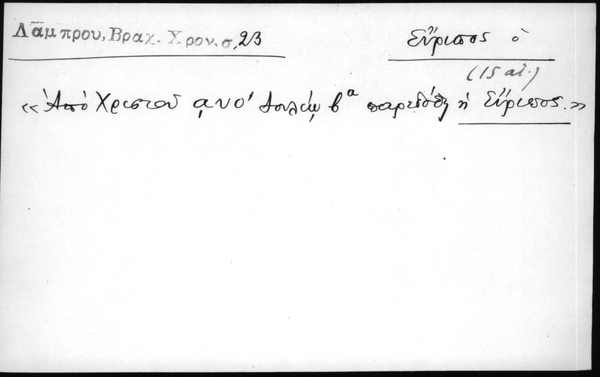 Λάμπρου, Βραχ. Χρον. σ. 23
Εὔριπος ὁ
(15 αἰ.)
«Ἀπὸ Χριστοῦ ͵αυο' Ἰουλίῳ βα παρεδόθη ἡ Εὔριπος.»